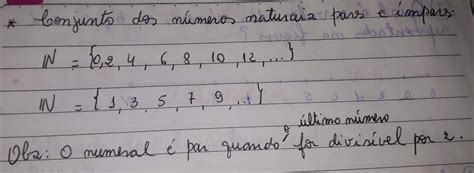 * Conjunto dos números naturais pares e ímpares
IN = {0, 2, 4, 6, 8, 10, 12, ...}
IN = {1, 3, 5, 7, 9, ...}
último número
Obs: O numeral é par quando o for divisível por 2.